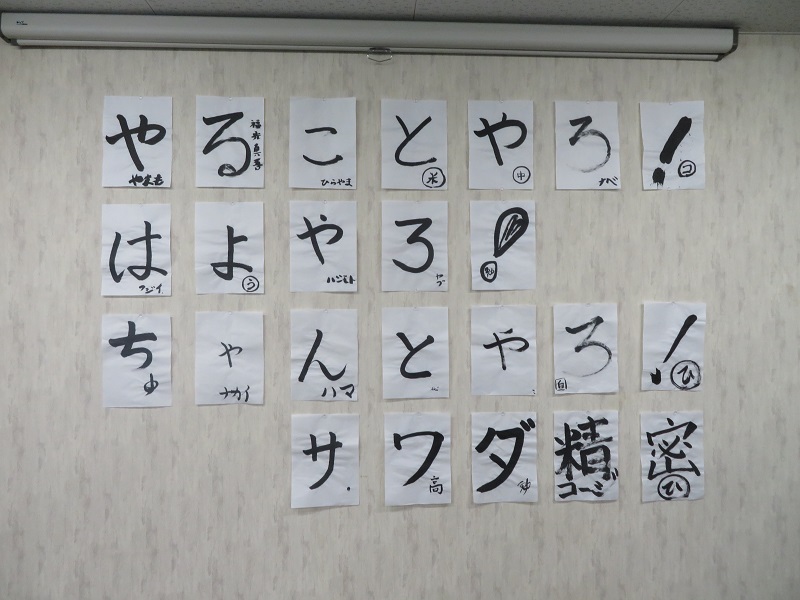 やることやろ！
はよやろ！
ちゃんとやろ！
サワダ精密
やまもと
ひらやま
米
中
ナベ
コ
フジイ
う
ハシモト
ヤブ
ゆ
ナカイ
ハマ
白
ひ
高
コージ
ひ